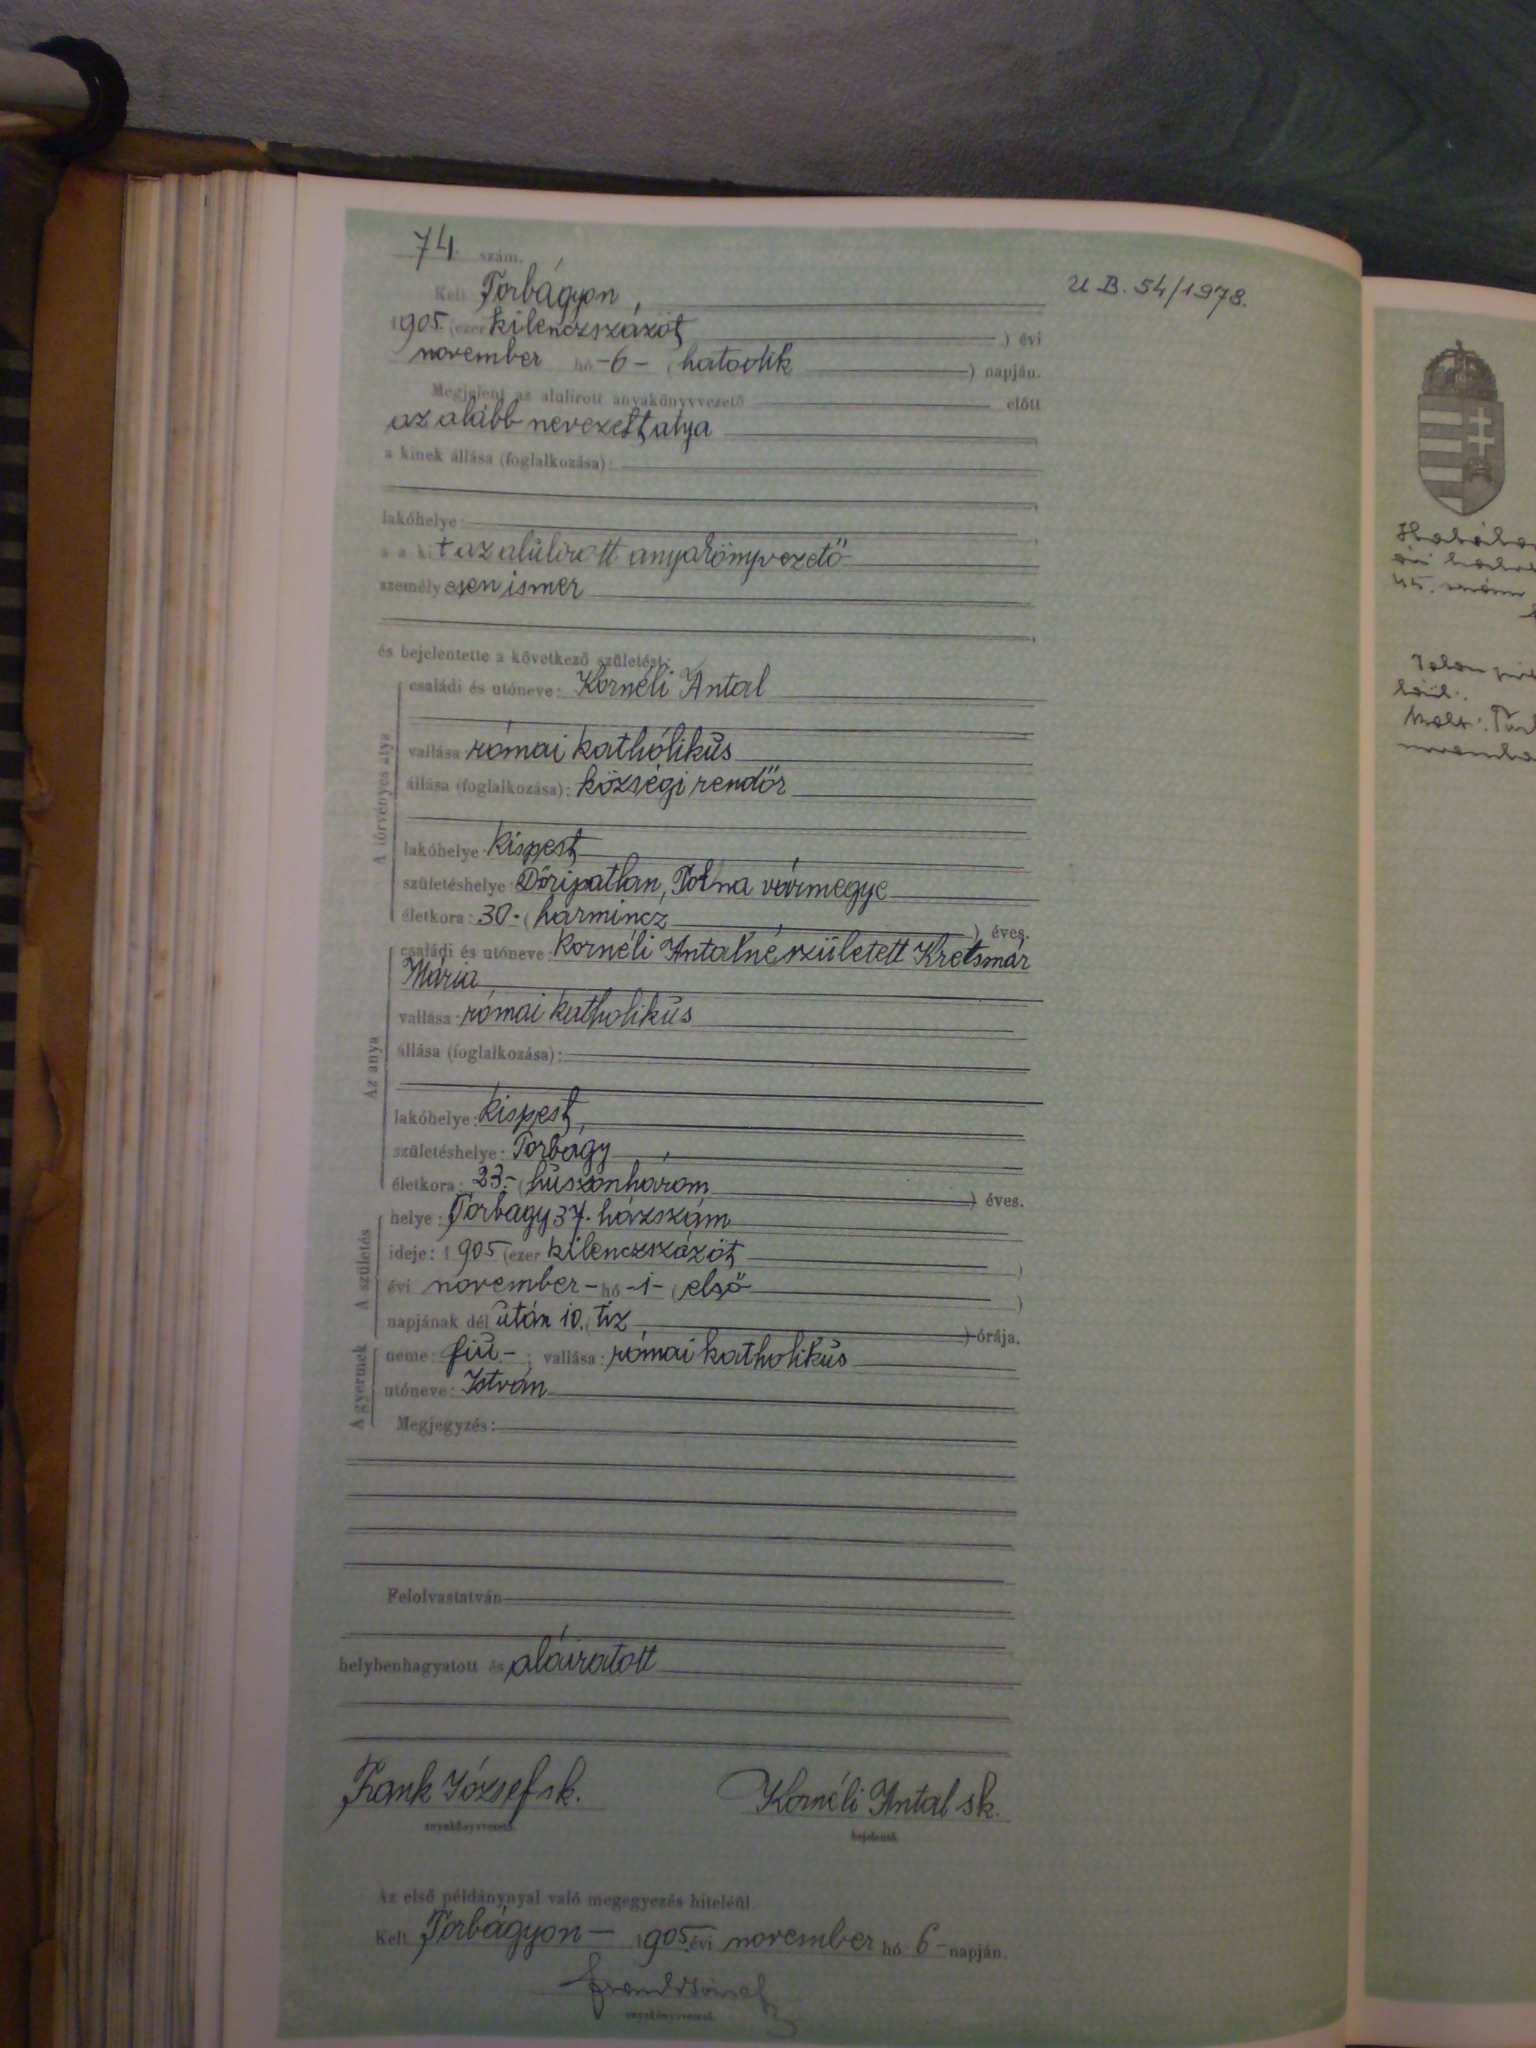 74. szám.
U B. 54/1978.
Kelt Torbágyon,
1905. (ezer kilenczszázöt) évi
november hó -6- (hatodik) napján.
Megjelent az alulirott anyakönyvvezető előtt
az alább nevezett atya
a kinek állása (foglalkozása):
lakóhelye:
s a kit az alulirott anyakönyvvezető
személyesen ismer
és bejelentette a következő születést:
A törvényes atya
családi és utóneve: Kornéli Antal
vallása: római katholikus
állása (foglalkozása): községi rendőr
lakóhelye: Kispest,
születéshelye: Döripatlan, Tolna vármegye
életkora: 30. (harmincz) éves.
Az anya
családi és utóneve: Kornéli Antalné született Kretsmár
Mária
vallása: római katholikus
állása (foglalkozása):
lakóhelye: Kispest,
születéshelye: Torbágy
életkora: 23.- (huszonhárom) éves.
A születés
helye: Torbágy 37. házszám
ideje: 1905 (ezer kilenczszázöt)
évi november - hó -1- (első)
napjának dél után 10. (tiz) órája.
A gyermek
neme: fiu - ; vallása: római katholikus
utóneve: István
Megjegyzés:
Felolvastatván
helybenhagyatott és aláiratott
Frank József sk. Kornéli Antal sk.
anyakönyvvezető. bejelentő.
Az első példánynyal való megegyezés hiteléül.
Kelt Torbágyon - 1905 évi november hó 6- napján.
Frank József
anyakönyvvezető.